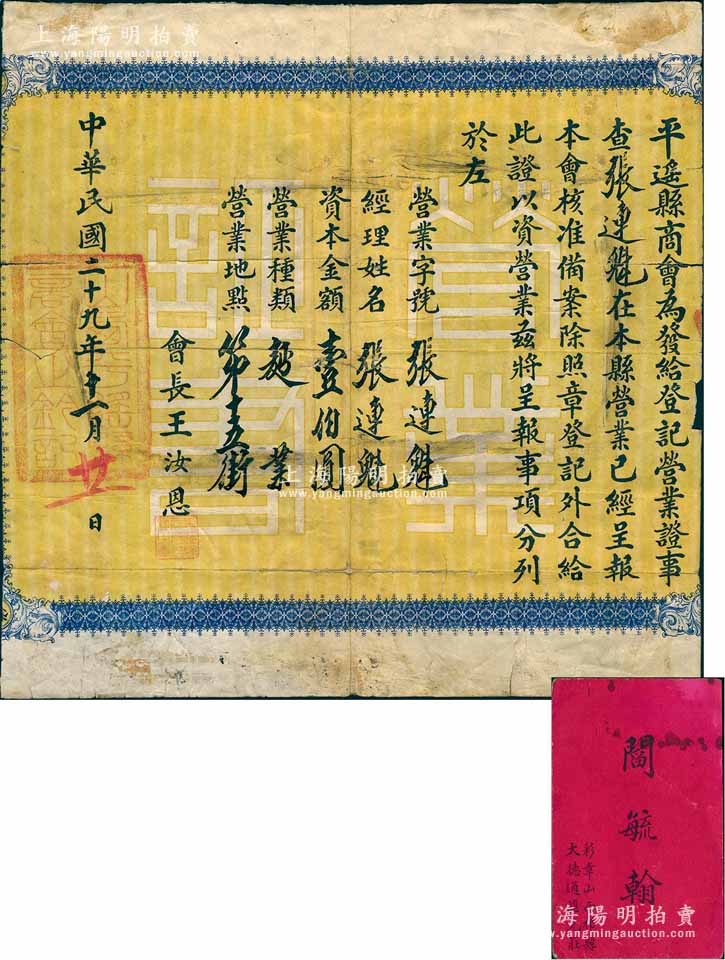 上海陽明拍賣
www.yangmingauction.com
平遥縣商會為發給登記營業證事
查張連魁在本縣營業已經呈報
本會核准備案除照章登記外合給
此證以資營業兹將呈報事項分列
於左
營業字號 張連魁
經理姓名 張連魁
資本金額 壹佰圓
營業種類 麵業
營業地點 第五街
會長王汝恩
中華民國二十九年十一月廿一日
營業
證書
上海陽明拍賣
www.yangmingauction.com
閻毓翰
彩章山西祁縣
大德通
海陽明拍賣
www.yangmingauction.com